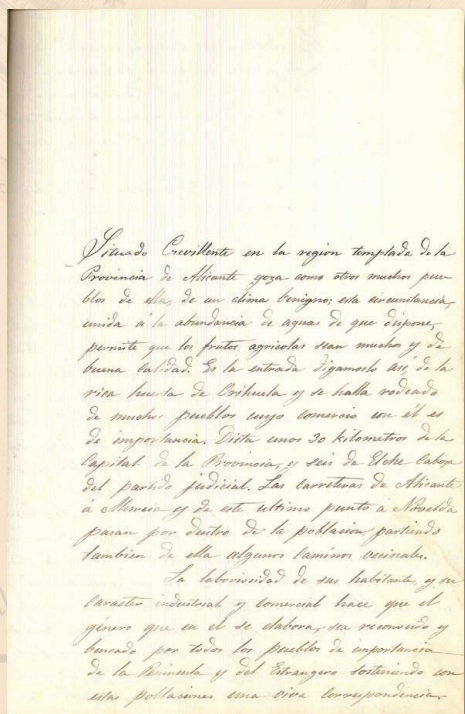 Situado Crevillente en la region templada de la
Provincia de Alicante goza como otros muchos pue-
blos de ella, de un clima benigno; esta circunstancia,
unida á la abundancia de aguas de que dispone,
permite que los frutos agricolas sean muchos y de
buena calidad. Es la entrada digamoslo asi, de la
rica huerta de Orihuela y se halla rodeado
de muchos pueblos cuyo comercio con el es
de importancia. Dista unos 30 kilometros de la
Capital de la Provincia, y seis de Elche Cabeza
del partido judicial. Las carreteras de Alicante
á Murcia y de este ultimo punto á Novelda
pasan por dentro de la poblacion, partiendo
tambien de ella algunos caminos vecinales.
La laboriosidad de sus habitantes y su
caracter industrial y comercial hace que el
género que en el se elabora, sea reconocido y
buscado por todos los pueblos de importancia
de la Peninsula y del Estrangero sosteniendo con
estas poblaciones una viva correspondencia.